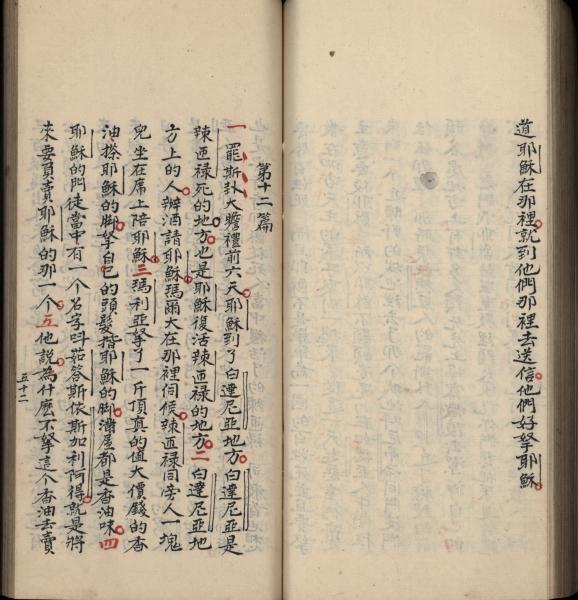 道耶穌在那裡就到他們那裡去送信他們好拏耶穌
第十二篇
一 罷斯扒大瞻禮前六天耶穌到了白達尼亞地方白達尼亞是
辣匝禄死的地方也是耶穌復活辣匝禄的地方二白達尼亞地
方上的人辦酒請耶穌瑪爾大在那裡伺候辣匝禄同旁人一塊
兒坐在席上陪耶穌三瑪利亞拏了一斤頂真的值大價錢的香
油搽耶穌的脚拏自己的頭髮揩耶穌的脚滿屋都是香油味四
耶穌的門徒當中有一个名字呌茹答斯依斯加利阿得就是將
來要買賣耶穌的那一个五他説為什麽不拏這个香油去賣
五十二